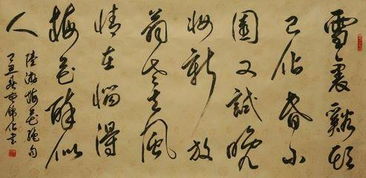 雪裏谿頭
已佔春小
園又試晚
妝新放
翁老去風
情在惱得
梅花醉似
人
陸游梅花絕句
丁丑